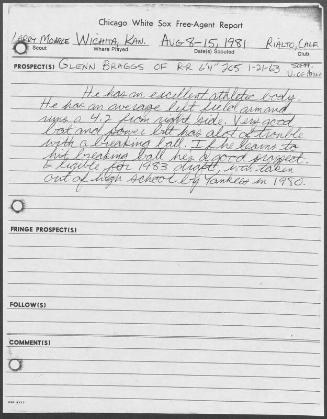 Chicago White Sox Free-Agent Report
Larry Monroe Wichita, Kan. Aug 8-15, 1981 Rialto, Calif
Scout Where Played Date(s) Scouted Club
PROSPECT(S) Glenn Braggs OF R-R 6'4" 205 1-21-63
He has an excellent athletic body.
He has an average left field arm and
runs a 4.2 from right side. Very good
bat and power but has alot of trouble
with a breaking ball. If he learns to
hit breaking ball hes a good prospect.
Eligible for 1983 draft, was taken
out of high school by Yankees in 1980.
FRINGE PROSPECT(S)
FOLLOW(S)
COMMENT(S)